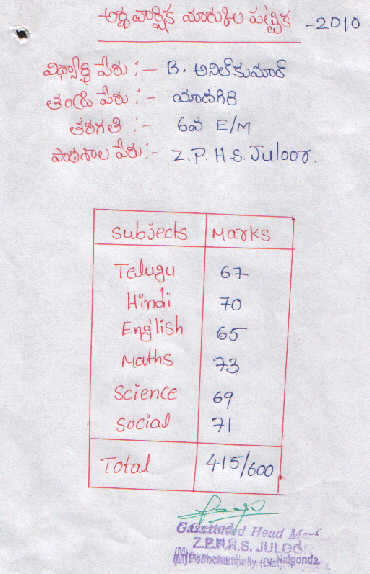 అర్ధవార్షిక మార్కుల పట్టిక -2010
విద్యార్థి పేరు :- B. అనిల్ కుమార్
తండ్రి పేరు :- యాదగిరి
తరగతి :- 6వ E/M
పాఠశాల పేరు :- Z.P.H.S. Juloor.
Subjects Marks
Telugu 67
Hindi 70
English 65
Maths 73
Science 69
Social 71
Total 415/600
Gazetted Head Mast
Z.P.H.S. JULOO
Nalgonda